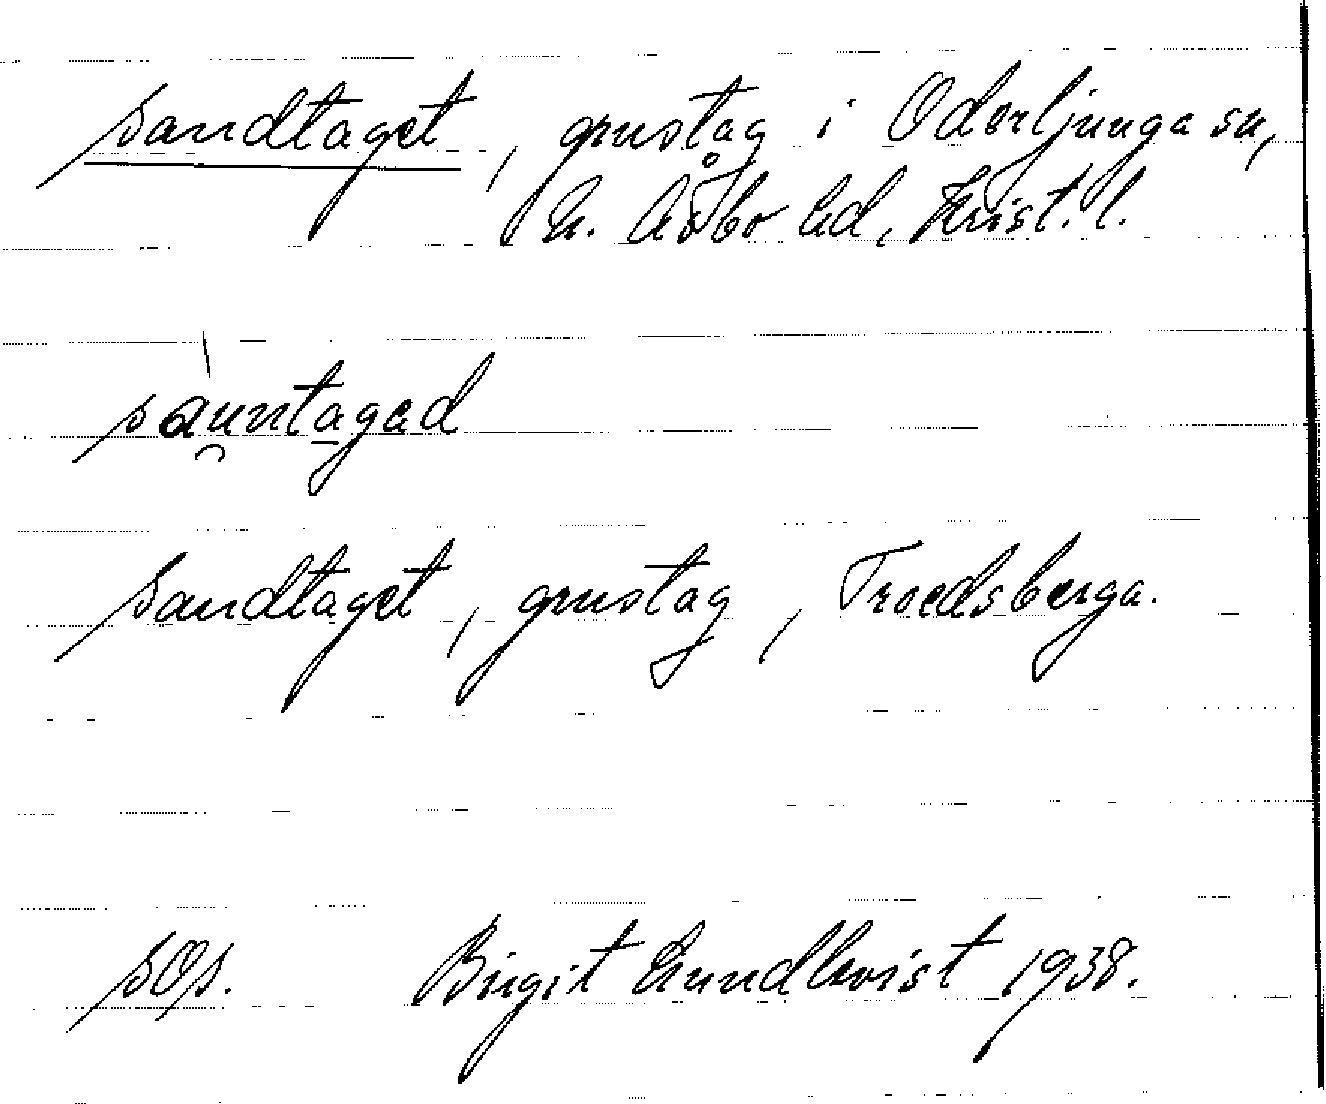 Sandtaget, grustag i Oderljunga sn,
N. Åsbo hd, Krist. l.
sauntagad
Sandtaget, grustag, Troedsberga.
sOp. Birgit Lundkvist 1938.